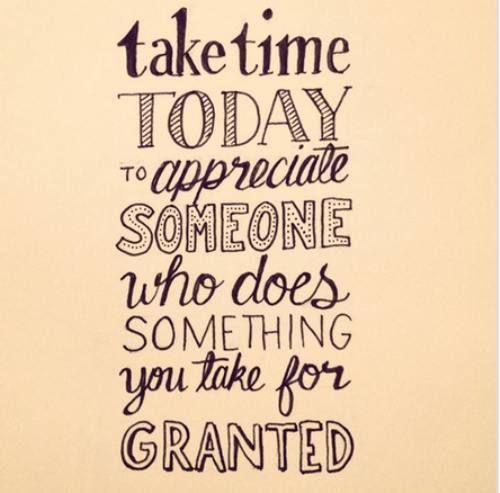 take time
TODAY
TO appreciate
SOMEONE
who does
SOMETHING
you take for
GRANTED